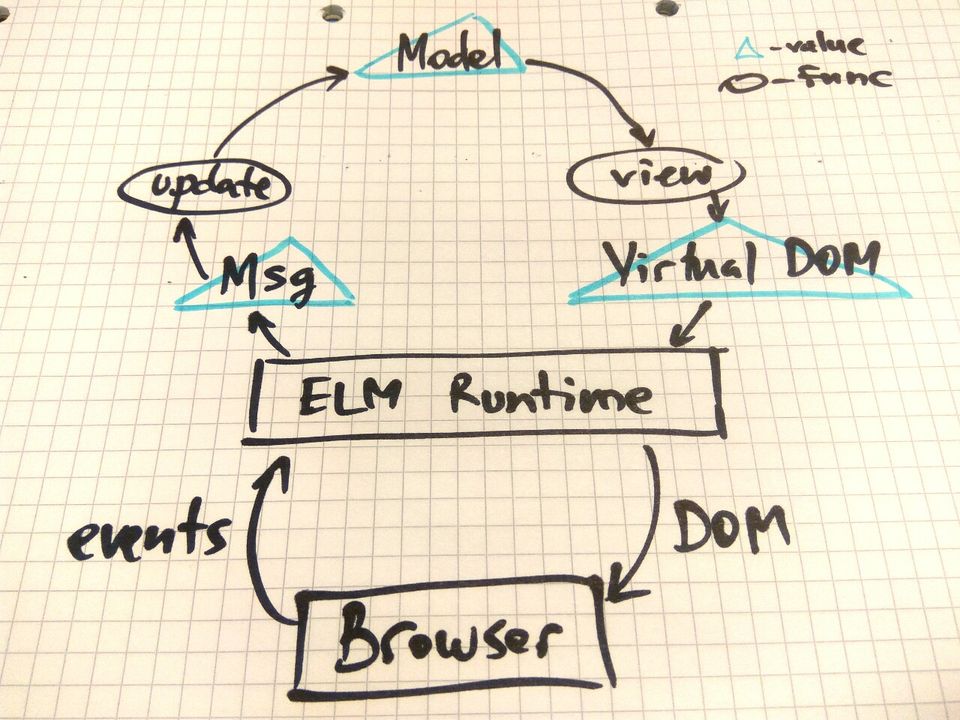 Model
△-value
○-func
update
view
Msg
Virtual DOM
ELM Runtime
events
DOM
Browser